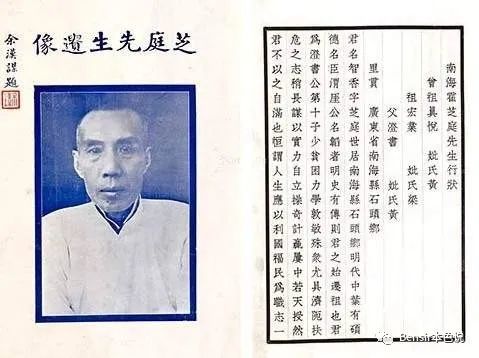 芝庭先生遺像
余漢謀題
南海霍芝庭先生行狀
曾祖真悅 妣氏黃
祖宏業 妣氏梁
父澄書 妣氏黃
里貫 廣東省南海縣石頭鄉
君名智香字芝庭世居南海縣石頭鄉明代中葉有碩
德名臣渭厓公名韜者明史有傳則君之始遷祖也君
為澄書公第十子少貧困力學敦敏殊衆尤具濟阨扶
危之志稍長謀以實力自立操奇計贏屢中若天授然
君不以之自滿也恒謂人生應以利國福民為職志一
Bensir本色悅